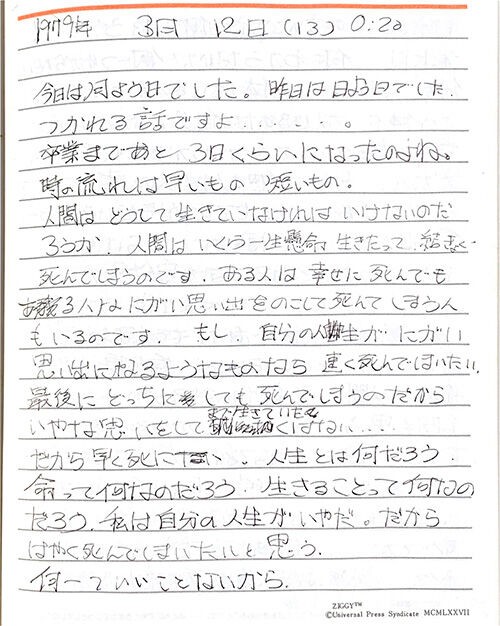 1979年 3月 12日 (13) 0:20
今日は月よう日でした。昨日は日よう日でした.
つかれる話ですよ.......。
卒業まであと 3日くらいになったのよね。
時の流れは早いもの 短いもの.
人間は どうして 生きていなければ いけないのだ
ろうか. 人間は いくら一生懸命 生きたって. 結きょく
死んでしまうのです. ある人は 幸せに 死んでも
ある人は にがい思い出をのこして 死んで しまう人
もいるのです. もし. 自分の人生が にがい
思い出になるようなものなら 速く死んでしまいたい.
最後に どっちにしても 死んでしまうのだから
いやな思いをしてまで生きていたくはない...
だから 早く死にたい.. 人生とは 何だろう.
命って何なのだろう. 生きることって何なの
だろう. 私は自分の人生がいやだ。だから
はやく死んでしまいたいと思う.
何一ついいことないから.
ZIGGY™
©Universal Press Syndicate MCMLXXVII